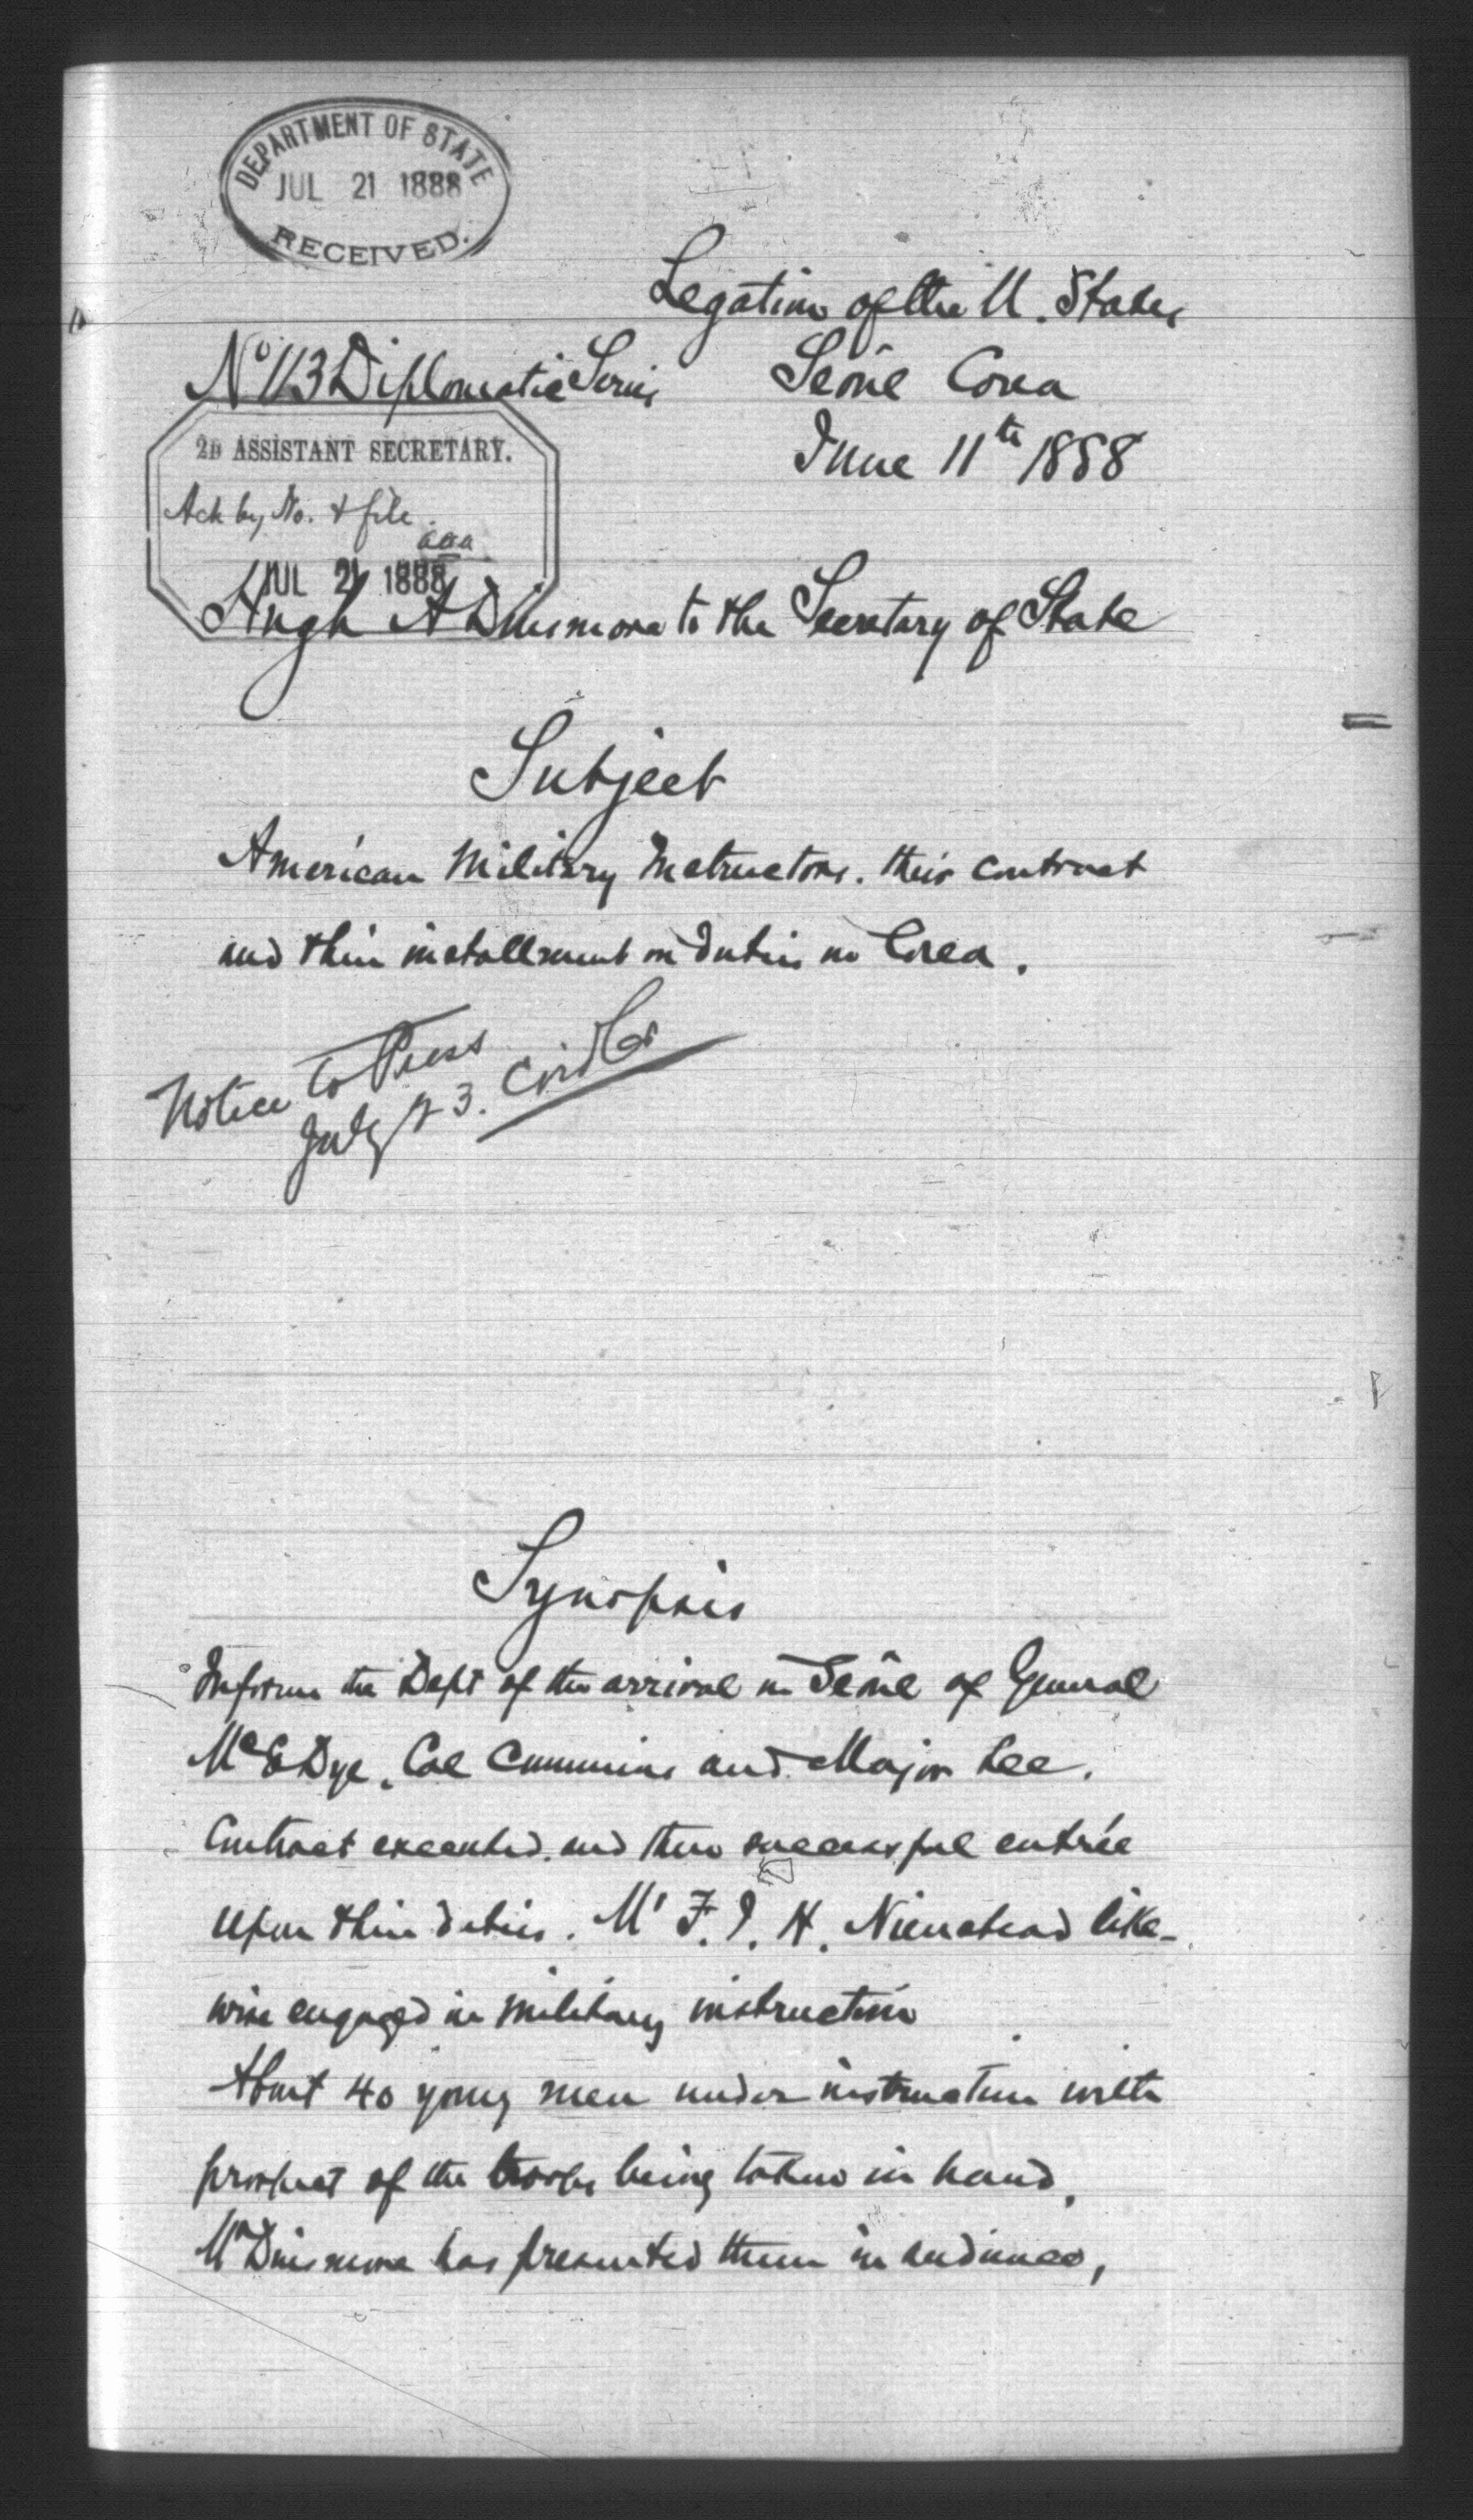 DEPARTMENT OF STATE
JUL 21 1888
RECEIVED.
Legation of the U. States
No 113 Diplomatic Series
Seoul Corea
June 11th 1888
2D ASSISTANT SECRETARY.
Ack by No. & file.
aaa
JUL 21 1888
Hugh A Dinsmore to the Secretary of State
Subject
American Military Instructors. their contract
and their installment in duties in Corea.
Notice to Press
July 23. Cridler
Synopsis
Inform the Dept of the arrival in Seoul of General
Mc E Dye, Col Cummins and Major Lee.
Contract executed. and their successful entrée
upon their duties. Mr F. J. H. Nienstead like-
wise engaged in military instruction
About 40 young men under instruction with
prospect of the troops being taken in hand.
Mr Dinsmore has presented them in audience,